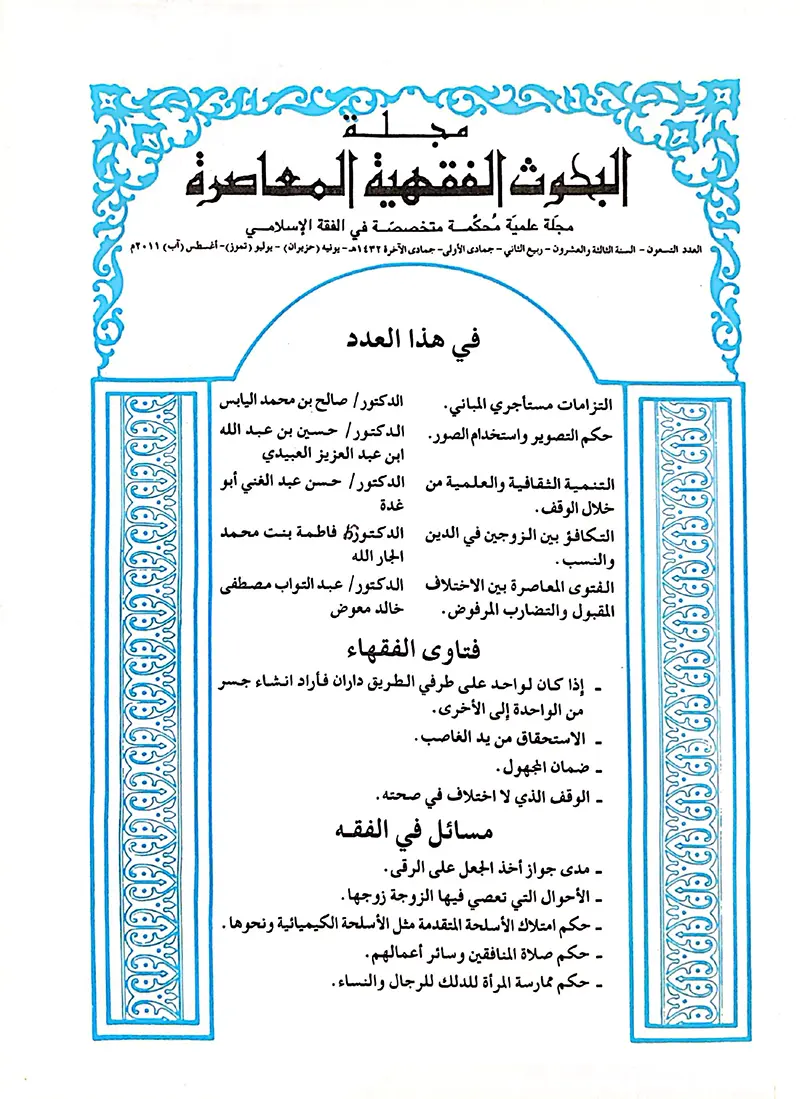 مجلة
البحوث الفقهية المعاصرة
مجلة علمية مُحكّمة متخصصة في الفقة الإسلامي
العدد التسعون - السنة الثالثة والعشرون - ربيع الثاني - جمادى الأولى - جمادى الآخرة ١٤٣٢هـ - يونيه (حزيران) - يوليو (تموز) - أغسطس (آب) ٢٠١١م
في هذا العدد
التزامات مستأجري المباني. الدكتور/ صالح بن محمد اليابس
حكم التصوير واستخدام الصور. الدكتور/ حسين بن عبد الله
ابن عبد العزيز العبيدي
التنمية الثقافية والعلمية من الدكتور/ حسن عبد الغني أبو
خلال الوقف. غدة
التكافؤ بين الزوجين في الدين الدكتورة/ فاطمة بنت محمد
والنسب. الجار الله
الفتوى المعاصرة بين الاختلاف الدكتور/ عبد التواب مصطفى
المقبول والتضارب المرفوض. خالد معوض
فتاوى الفقهاء
- إذا كان لواحد على طرفي الطريق داران فأراد انشاء جسر
من الواحدة إلى الأخرى.
- الاستحقاق من يد الغاصب.
- ضمان المجهول.
- الوقف الذي لا اختلاف في صحته.
مسائل في الفقه
- مدى جواز أخذ الجعل على الرقى.
- الأحوال التي تعصي فيها الزوجة زوجها.
- حكم امتلاك الأسلحة المتقدمة مثل الأسلحة الكيميائية ونحوها.
- حكم صلاة المنافقين وسائر أعمالهم.
- حكم ممارسة المرأة للدلك للرجال والنساء.